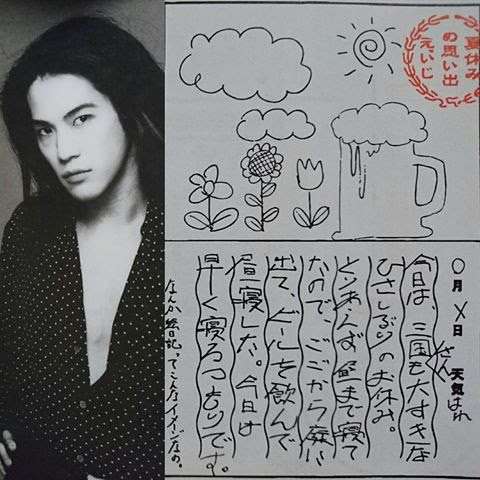 夏休み
の思い出
えいじ
〇月X日 天気 はれ
今日は、大すきな
ひさしぶりのお休み。
とりあえず昼まで寝て
たので、ごごから庭に
出て、ビールを飲んで
昼寝した。今日は
早く寝るつもりです。
なんか絵日記ってこんなイメージなの。